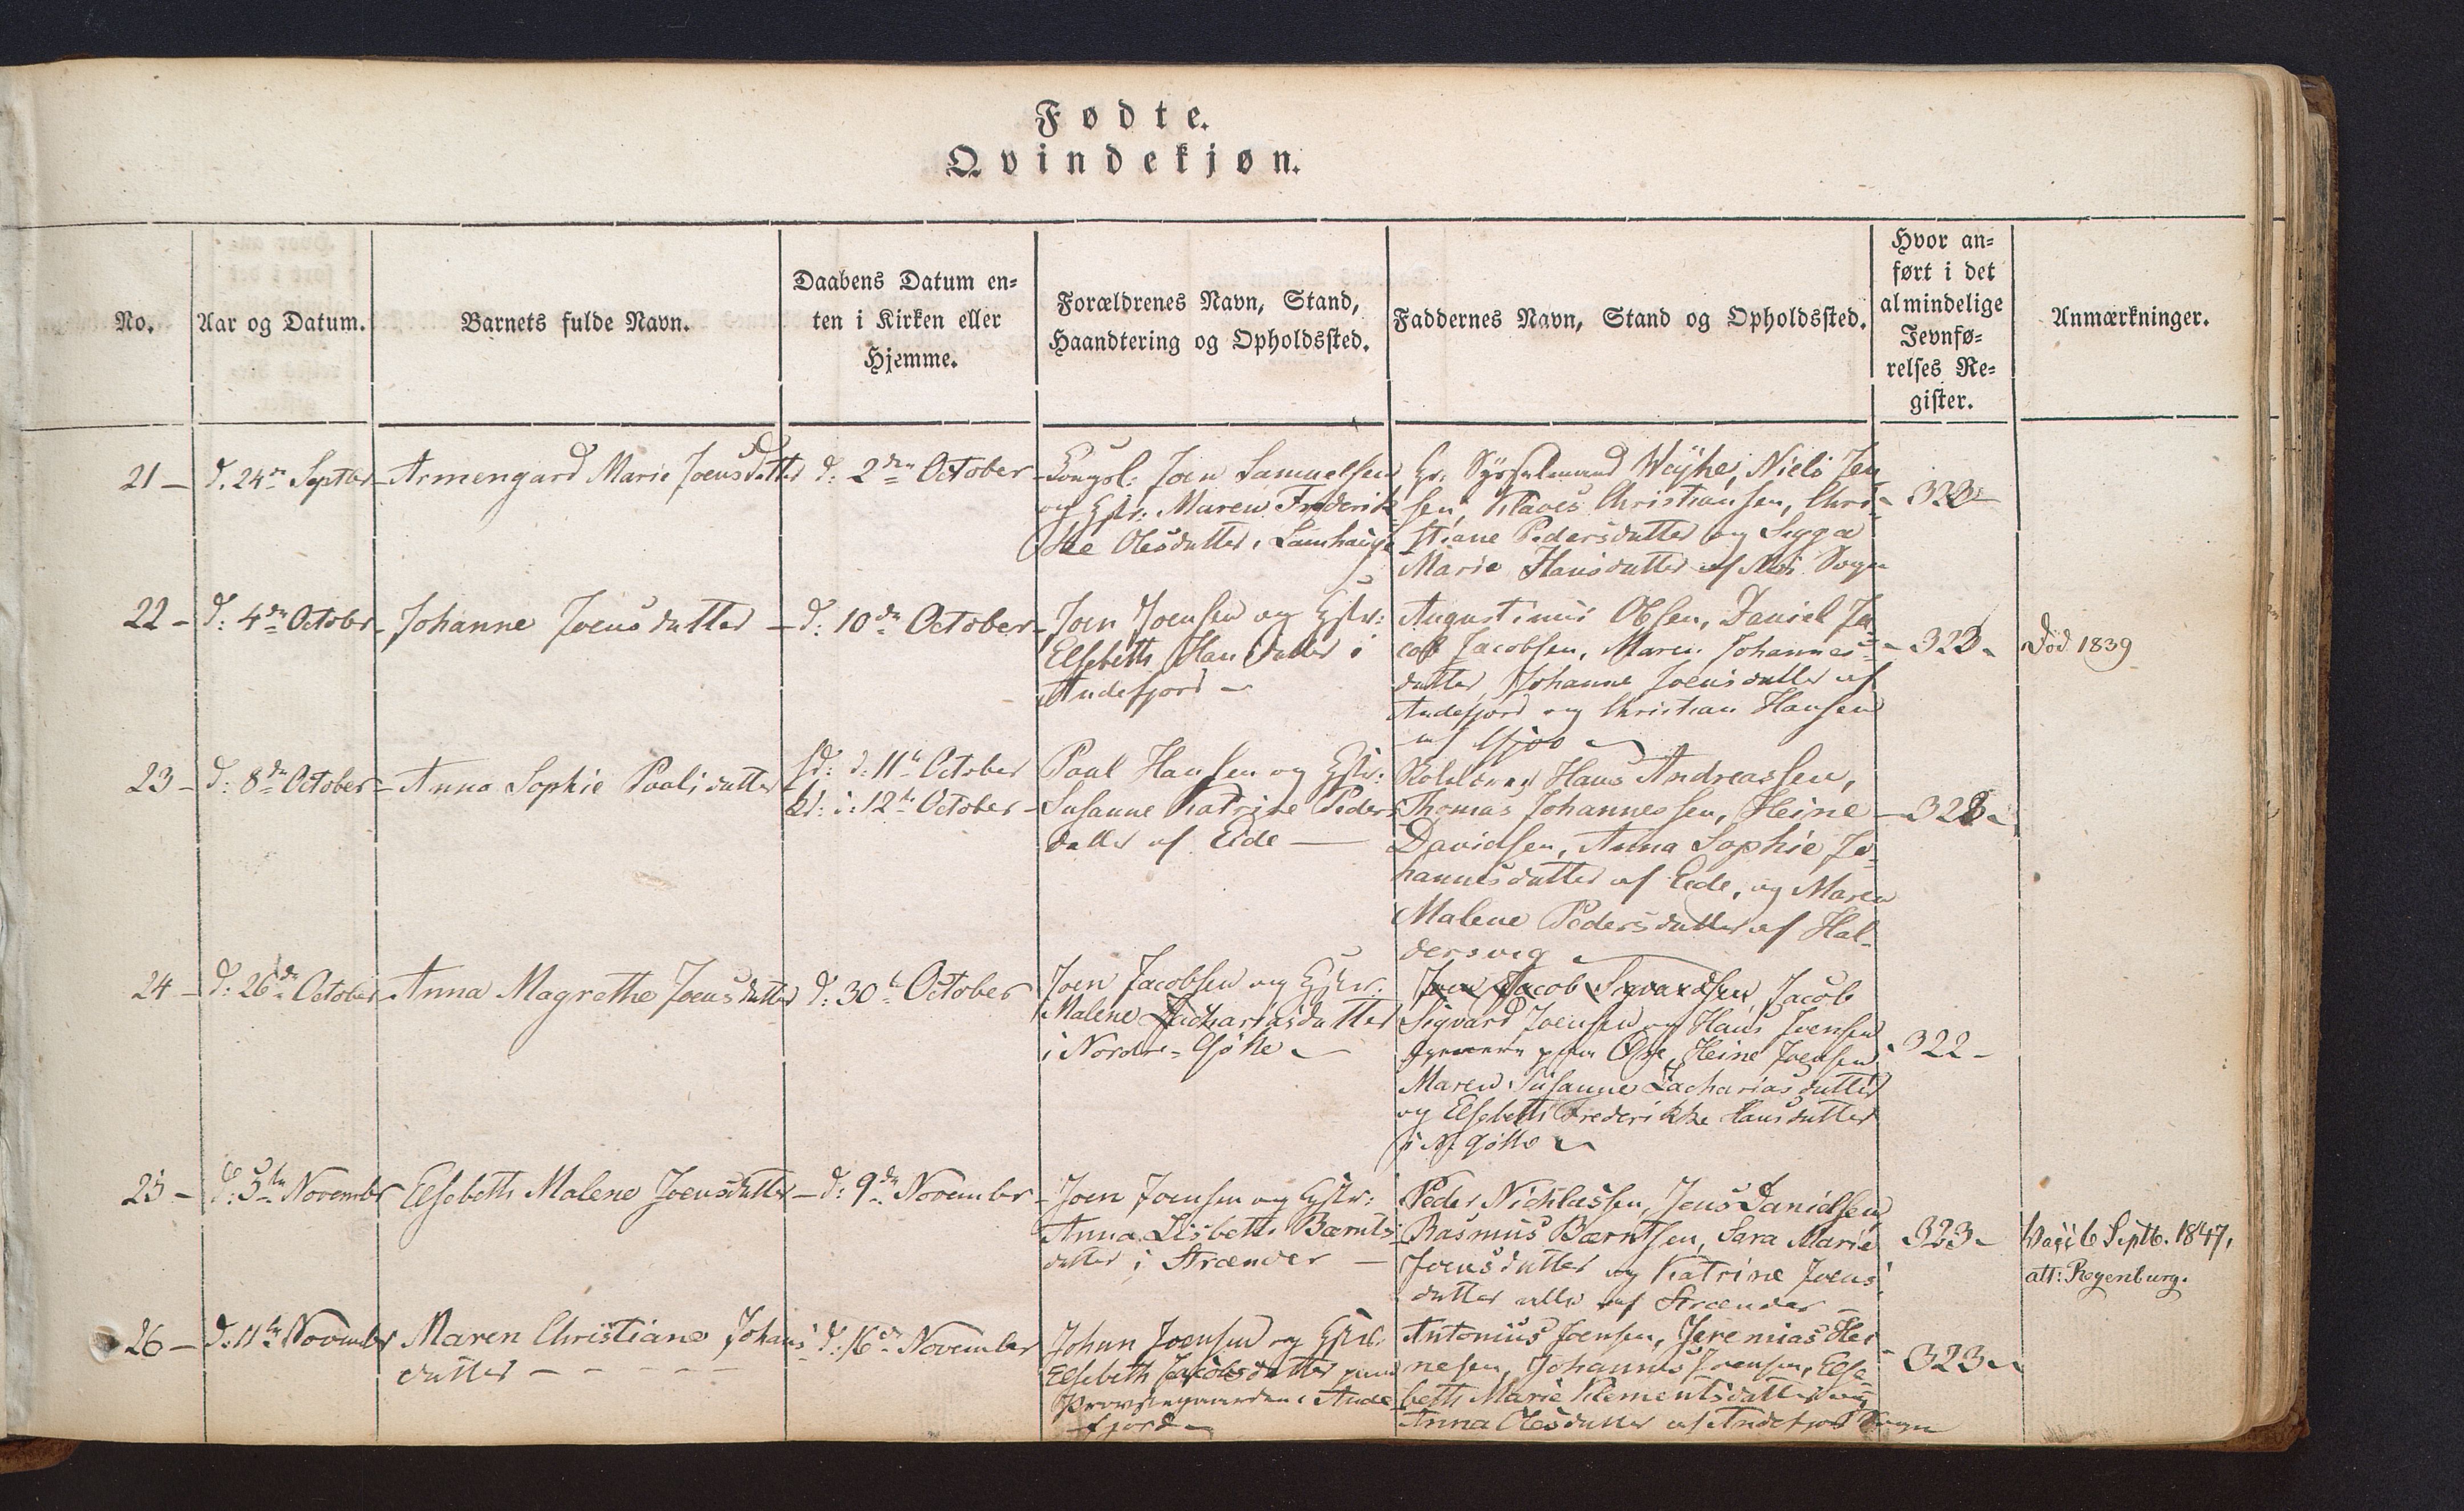 Fødte.
Qvindekjøn.
No.
Aar og Datum.
Barnets fulde Navn.
Daabens Datum en-
ten i Kirken eller
Hjemme.
Forældrenes Navn, Stand,
Haandtering og Opholdssted.
Faddernes Navn, Stand og Opholdssted.
Hvor an-
ført i det
almindelige
Jevnfø-
relses Re-
gister.
Anmærkninger.
21 - d. 24de Septbr - Armengard Marie Joensdatter d: 2den October
Kongsl: Joen Samuelsen
og Hstr: Maren Frederik
ke Olesdatter, Lamhauge
Hr. Sysselmand Weyhe, Niels Jen
sen, Klaves Christiansen, Chri-
stiane Pedersdatter og Sigga
Marie Hansdatter af Næs Sogn
323-
22 - d: 4de Octobr - Johanne Joensdatter - d: 10de October
Joen Joensen og Hstr:
Elsebeth Hansdatter i
Andefjord -
Augustinus Olsen, Daniel Ja
cob Jacobsen, Maren Johannes-
datter, Johanne Joensdatter af
Andefjord og Christian Hansen
af Gjov
- 323 -
Død 1839
23 - d: 8de October - Anna Sophie Poulsdatter
fd: d: 11te October
kd: d: 12te October -
Poul Hansen og Hstr:
Susanne Katrine Peders
datter af Eide -
Hans Andreassen,
Thomas Johannessen, Heine
Davidsen, Anna Sophie Jo-
hannesdatter af Eide, og Maren
Malene Pedersdatter af Hal-
dersvig
- 328 -
24 - d: 26de October - Anna Magrethe Joensdatter d: 30te October
Joen Jacobsen og Hstr:
Malene Zachariasdatter
i Nordre-Gøthe -
Joen Jacob Sigvardsen, Jacob
Sigvard Joensen og Hans Joensen
paa Øre, Heine Joensen
Maren Susanne Zachariasdatter
og Elsebeth Frederikke Hansdatter
i N. Gøthe
322 -
25 - d: 5te Novembr Elsebeth Malene Joensdatter - d: 9de November
- Joen Joensen og Hstr:
Anna Lisbeth Bærnts
datter i Strænder -
Peder Nichlassen, Jens Danielsen
Rasmus Bærntsen, Sara Marie
Joensdatter og Katrine Joens
datter alle af Strænder -
323 -
Vacc: 6 Septb. 1847,
att: Regenburg.
26 - d: 11te Novembr Maren Christiane Johans
datter - - - - -
d: 16de November
Johan Joensen og Hstr:
Elsebeth Jacobsdatter paa
Provstegaarden i Ande
fjord -
Antonius Joensen, Jeremias Hei
nesen, Johannes Joensen, Else
beth Marie Klementsdatter og
Anna Olesdatter af Andefjord Sogn
- 323 -